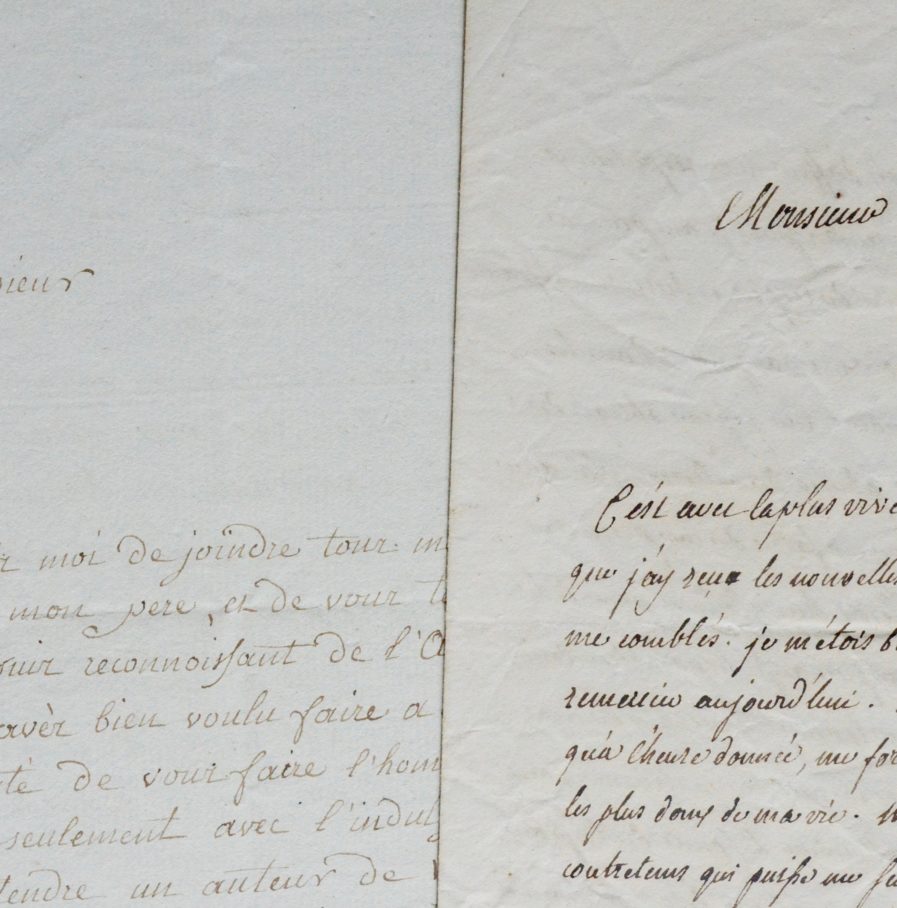 sieur
moi de joïndre tour m
mon pere, et de vour t
reconnoissant de l'O
avèr bien voulu faire a
té de vour faire l'hom
seulement avec l'indul
tendre un auteur de
Monsieur
C'est avec la plus vive
que j'ay reçu les nouvelles
me comblés. je m'étois b
remercier aujourd'hui.
qu'a l'heure donnée, me for
les plus doux de ma vie.
contretems qui puisse me